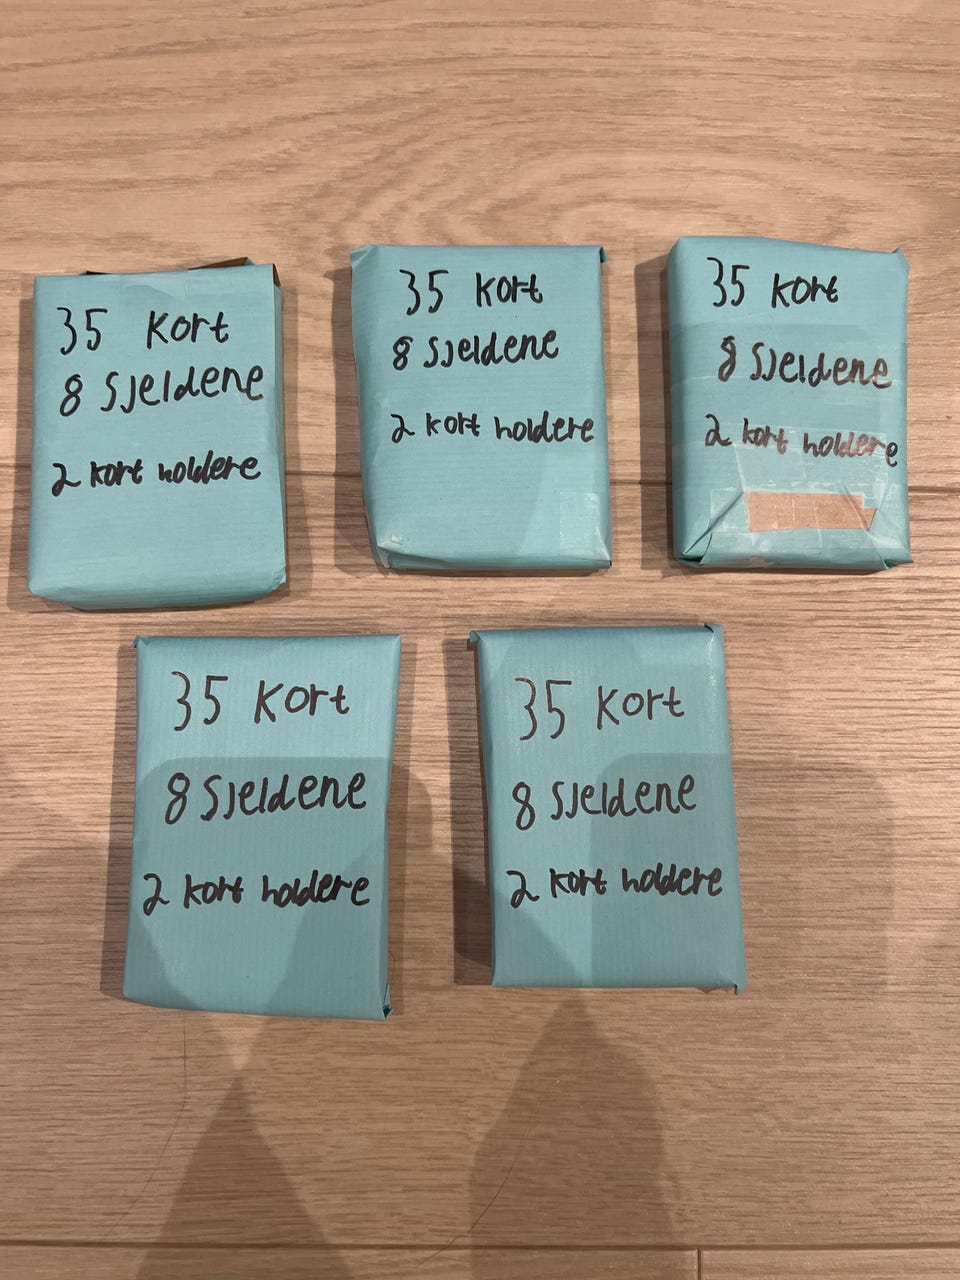 35 kort
8 Sjeldene
2 kort holdere
35 kort
8 Sjeldene
2 kort holdere
35 kort
8 Sjeldene
2 kort holdere
35 kort
8 Sjeldene
2 kort holdere
35 kort
8 Sjeldene
2 kort holdere